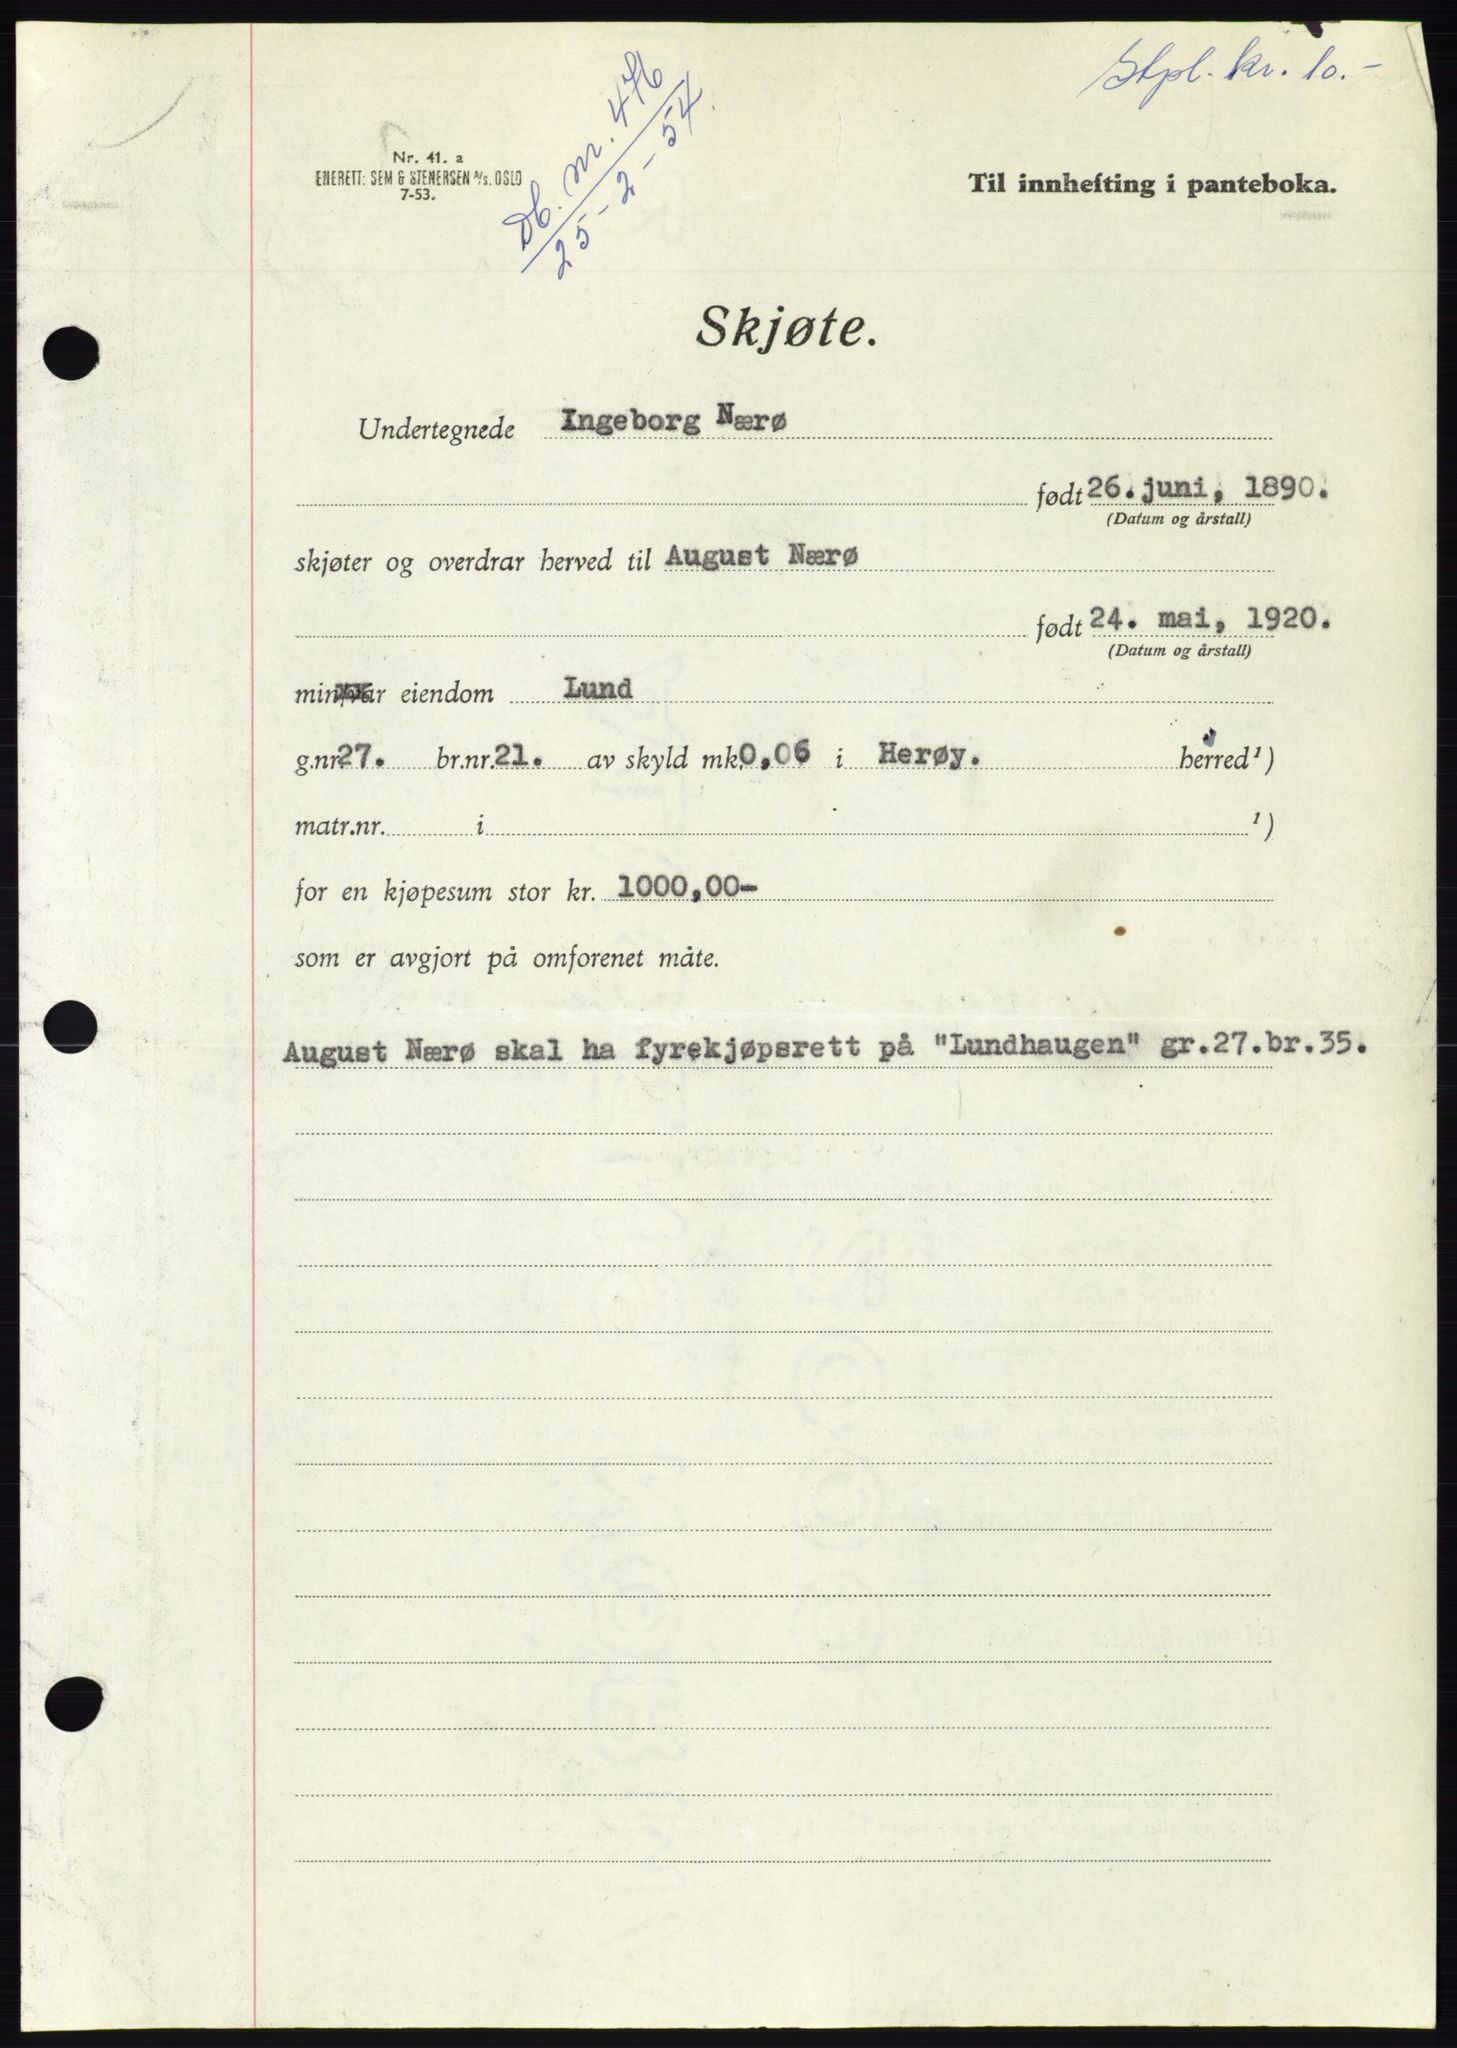 Stpl. kr. 10.-
Db. nr. 476
25-2-54.
Nr. 41. a
ENERETT: SEM & STENERSEN A/S. OSLO
7-53.
Til innhefting i panteboka.
Skjøte.
Undertegnede Ingeborg Nærø
født 26. juni, 1890.
(Datum og årstall)
skjøter og overdrar herved til August Nærø
født 24. mai, 1920.
(Datum og årstall)
min/vår eiendom Lund
g.nr. 27. br.nr. 21. av skyld mk. 0,06 i Herøy. herred ¹)
matr.nr. i ¹)
for en kjøpesum stor kr. 1000,00-
som er avgjort på omforenet måte.
August Nærø skal ha fyrekjøpsrett på "Lundhaugen" gr.27.br.35.